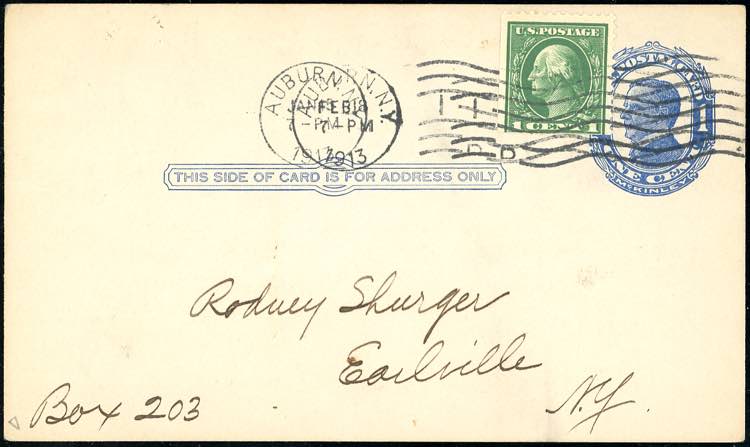 U.S. POSTAGE
1 CENT 1
POSTAL CARD
1
ONE CENT
McKINLEY
AUBURN, N.Y.
FEB 18
7 - PM
1913
THIS SIDE OF CARD IS FOR ADDRESS ONLY
Rodney Shurger
Earlville
Box 203
N.Y.